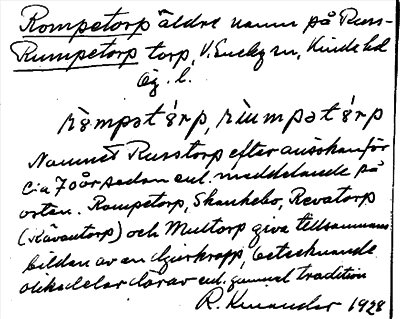 Rompetorp äldre namn på Russ-
Rumpetorp torp, V. Eneby sn, Kinds hd
Ög. l.
Namnet Russtorp efter
c:a 70 år sedan enl. meddelande på
orten. Rompetorp, Skankebo, Revatorp
(Rävautorp) och Multorp giva tillsammans
bilden av en djurkropp, betecknande
olika delar därav enl. gammal tradition
R. Knander 1928